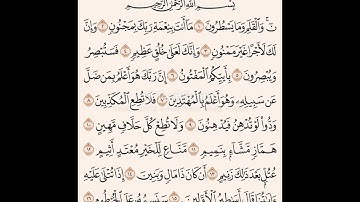 بِسْمِ اللَّهِ الرَّحْمَٰنِ الرَّحِيمِ
نٓ ۚ وَالْقَلَمِ وَمَا يَسْطُرُونَ ١ مَا أَنْتَ بِنِعْمَةِ رَبِّكَ بِمَجْنُونٍ ٢ وَإِنَّ
لَكَ لَأَجْرًا غَيْرَ مَمْنُونٍ ٣ وَإِنَّكَ لَعَلَىٰ خُلُقٍ عَظِيمٍ ٤ فَسَتُبْصِرُ
وَيُبْصِرُونَ ٥ بِأَييِّكُمُ الْمَفْتُونُ ٦ إِنَّ رَبَّكَ هُوَ أَعْلَمُ بِمَنْ ضَلَّ
عَنْ سَبِيلِهِ وَهُوَ أَعْلَمُ بِالْمُهْتَدِينَ ٧ فَلَا تُطِعِ الْمُكَذِّبِينَ ٨
وَدُّوا لَوْ تُدْهِنُ فَيُدْهِنُونَ ٩ وَلَا تُطِعْ كُلَّ حَلَّافٍ مَهِينٍ ١٠
هَمَّازٍ مَشَّاءٍ بِنَمِيمٍ ١١ مَنَّاعٍ لِلْخَيْرِ مُعْتَدٍ أَثِيمٍ ١٢
عُتُلٍّ بَعْدَ ذَٰلِكَ زَنِيمٍ ١٣ أَنْ كَانَ ذَا مَالٍ وَبَنِينَ ١٤ إِذَا تُتْلَىٰ عَلَيْهِ
آيَاتُنَا قَالَ أَسَاطِيرُ الْأَوَّلِينَ ١٥ سَنَسِمُهُ عَلَى الْخُرْطُومِ ١٦